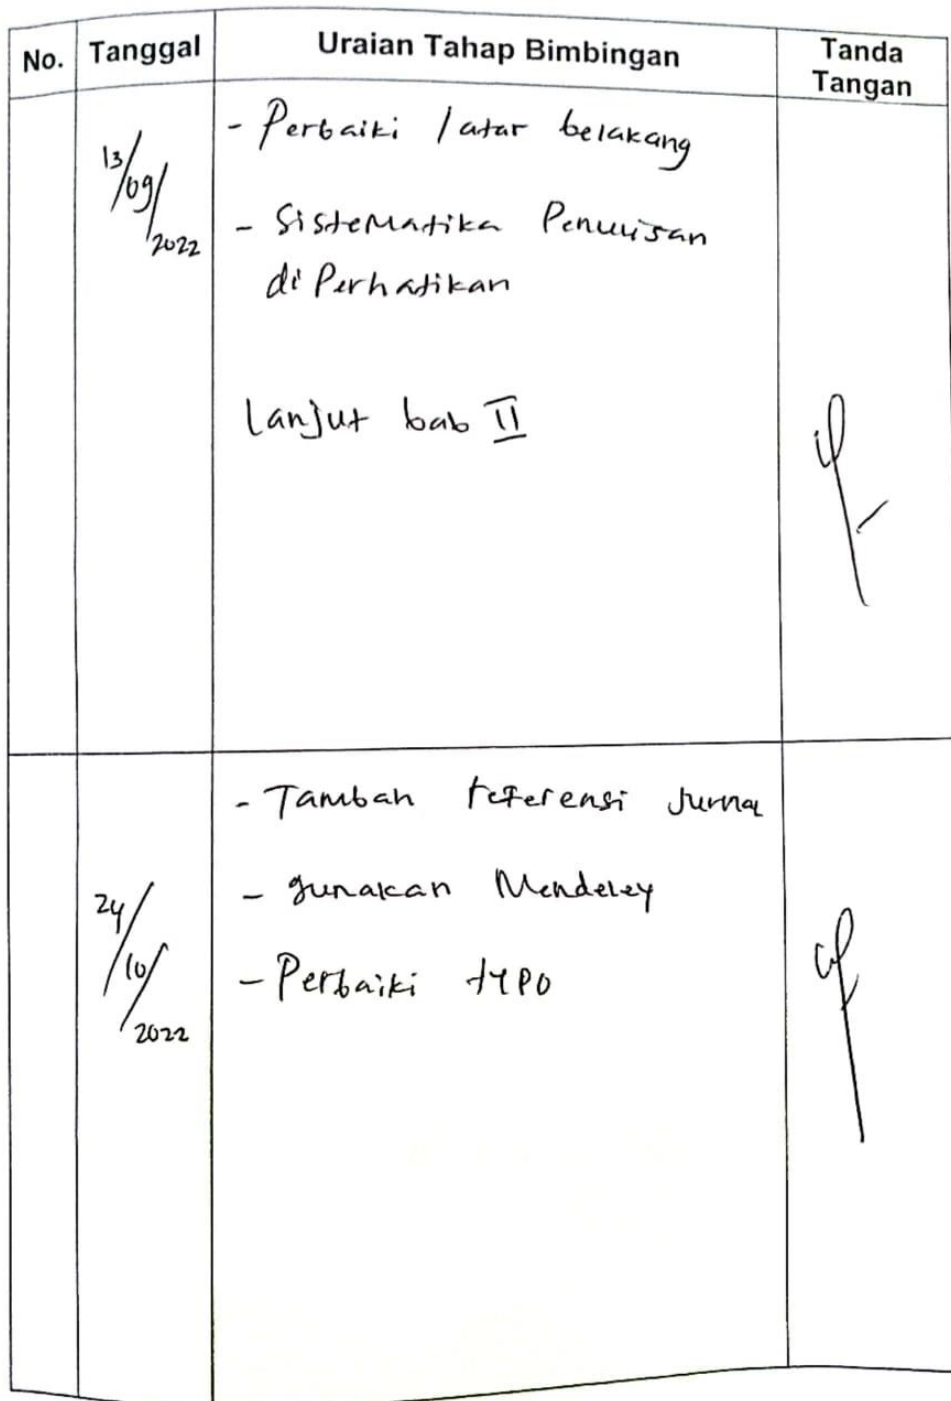 No. Tanggal Uraian Tahap Bimbingan Tanda Tangan
13/09/2022
- Perbaiki latar belakang
- Sistematika Penulisan
diPerhatikan
Lanjut bab II
24/10/2022
- Tambah referensi Jurnal
- gunakan Mendeley
- Perbaiki typo